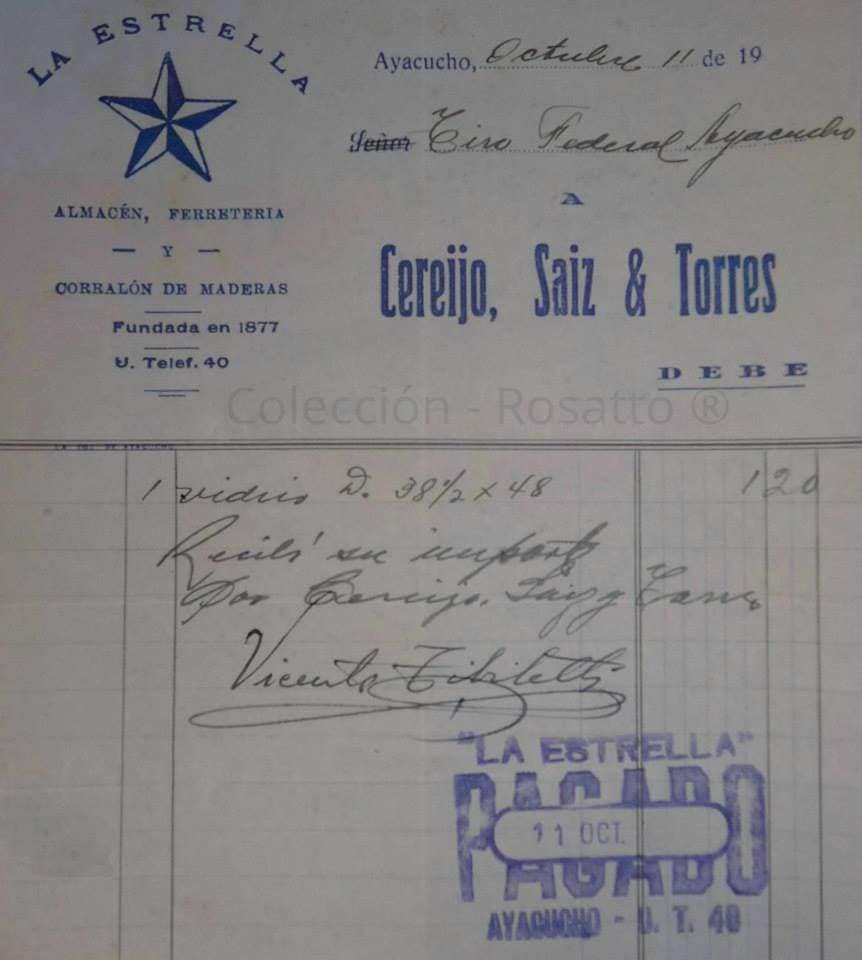 LA ESTRELLA
Ayacucho, Octubre 11 de 19
Señor Tiro Federal Ayacucho
A
ALMACÉN, FERRETERIA
Y
CORRALÓN DE MADERAS
Cereijo, Saiz & Torres
Fundada en 1877
U. Telef. 40
DEBE
Colección - Rosatto ®
LA VOZ DE AYACUCHO
1 vidrio D. 38 1/2 x 48 1 20
Recibí su importe
Por Cereijo, Saiz y Torres
Vicente Tibiletti
"LA ESTRELLA"
PAGADO
11 OCT.
AYACUCHO - U. T. 40